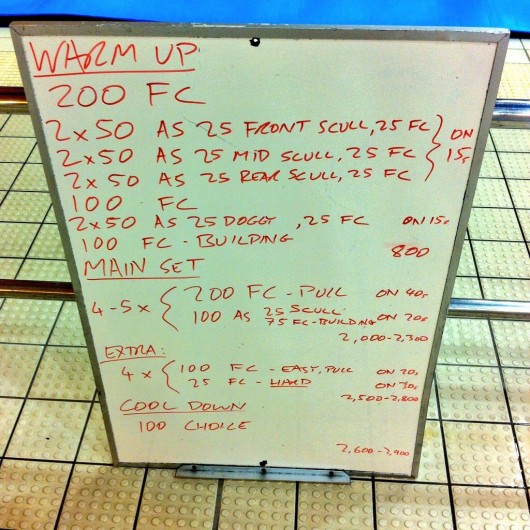 WARM UP
200 FC
2x50 AS 25 FRONT SCULL, 25 FC } ON
2x50 AS 25 MID SCULL, 25 FC } 15s
2x50 AS 25 REAR SCULL, 25 FC
100 FC
2x50 AS 25 DOGGY, 25 FC ON 15s
100 FC - BUILDING
800
MAIN SET
4-5 x { 200 FC - PULL ON 40s
100 AS 25 SCULL
75 FC-BUILDING ON 20s
2,000-2,300
EXTRA:
4 x { 100 FC - EASY, PULL ON 20s
25 FC - HARD ON 30s
2,500-2,800
COOL DOWN
100 CHOICE
2,600-2,900